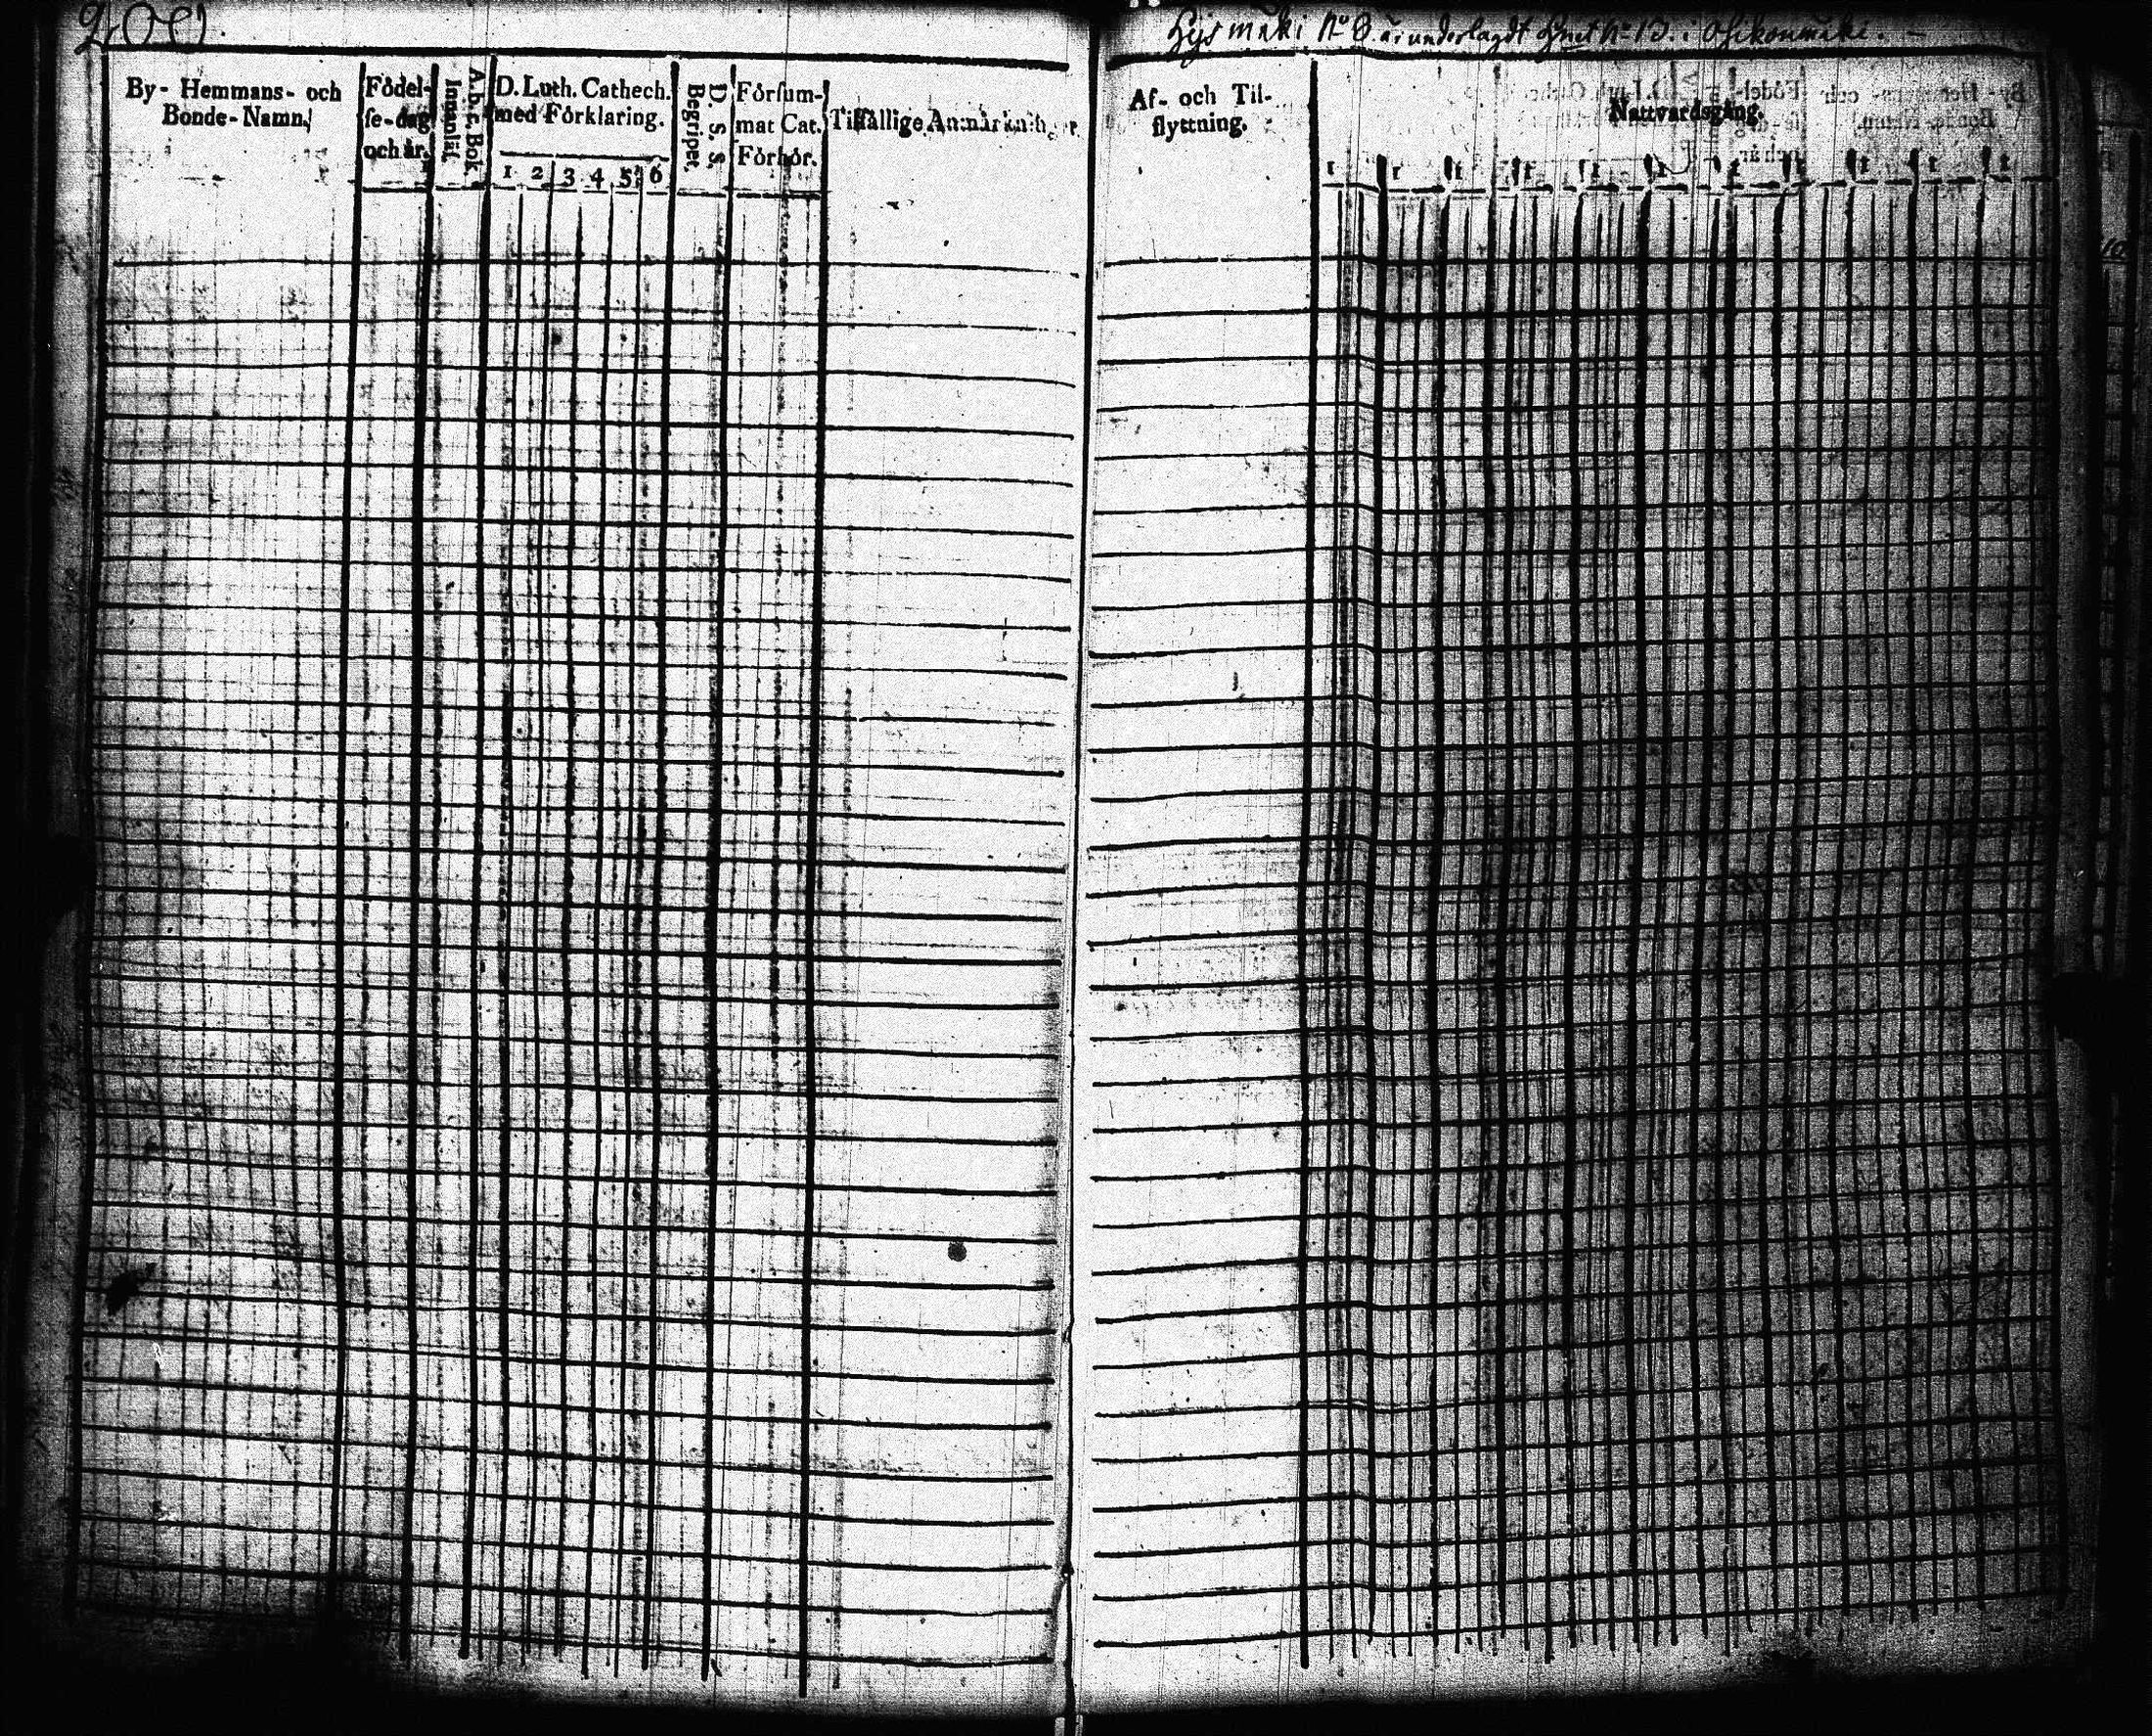 200
By- Hemmans- och
Bonde-Namn.
Födel-
se-dag
och år.
A.b.c. Bok
Innanläs.
D. Luth. Cathech.
med Förklaring.
1 2 3 4 5 6
D. S. S.
Begripet.
Försum-
mat Cat.
Förhör.
Tilfällige Anmärkningar
Hysmäki No 8. är underlagdt No 13. i Osikonmäki.
Af- och Til-
flyttning.
Nattvardsgång.
1 1 1 1 1 1 1 1 1 1